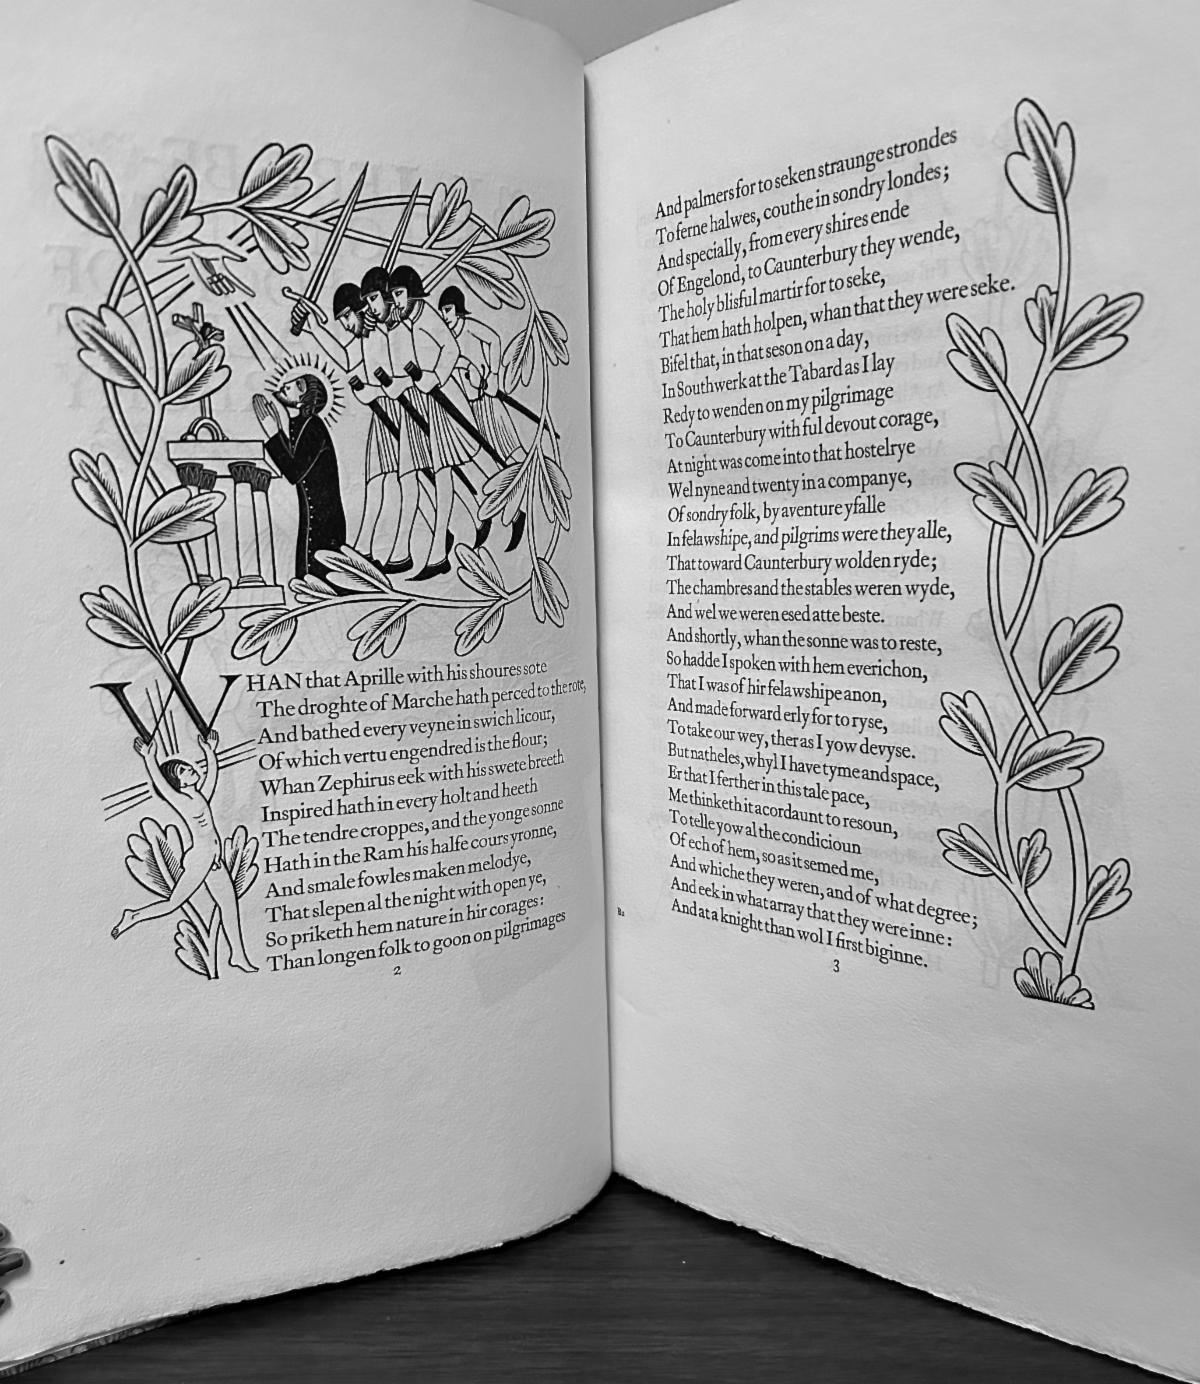 WHAN that Aprille with his shoures sote
The droghte of Marche hath perced to the rote,
And bathed every veyne in swich licour,
Of which vertu engendred is the flour;
Whan Zephirus eek with his swete breeth
Inspired hath in every holt and heeth
The tendre croppes, and the yonge sonne
Hath in the Ram his halfe cours yronne,
And smale fowles maken melodye,
That slepen al the night with open ye,
So priketh hem nature in hir corages:
Than longen folk to goon on pilgrimages
2
And palmers for to seken straunge strondes
To ferne halwes, couthe in sondry londes;
And specially, from every shires ende
Of Engelond, to Caunterbury they wende,
The holy blisful martir for to seke,
That hem hath holpen, whan that they were seke.
Bifel that, in that seson on a day,
In Southwerk at the Tabard as I lay
Redy to wenden on my pilgrimage
To Caunterbury with ful devout corage,
At night was come into that hostelrye
Wel nyne and twenty in a companye,
Of sondry folk, by aventure yfalle
In felawshipe, and pilgrims were they alle,
That toward Caunterbury wolden ryde;
The chambres and the stables weren wyde,
And wel we weren esed atte beste.
And shortly, whan the sonne was to reste,
So hadde I spoken with hem everichon,
That I was of hir felawshipe anon,
And made forward erly for to ryse,
To take our wey, ther as I yow devyse.
But natheles, whyl I have tyme and space,
Er that I ferther in this tale pace,
Me thinketh it acordaunt to resoun,
To telle yow al the condicioun
Of ech of hem, so as it semed me,
And whiche they weren, and of what degree;
And eek in what array that they were inne:
And at a knight than wol I first biginne.
3